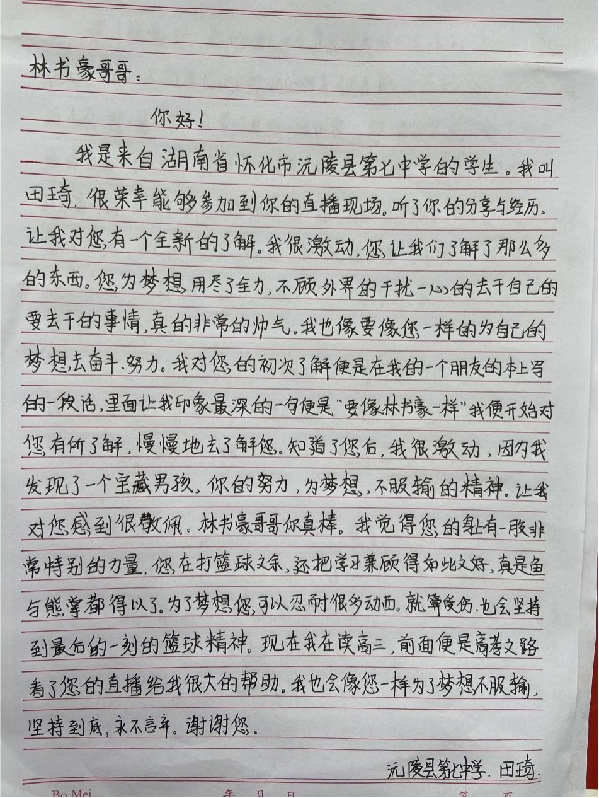 林书豪哥哥：
你好！
我是来自湖南省怀化市沅陵县第七中学的学生。我叫
田琦，很荣幸能够参加到你的直播现场。听了你的分享与经历，
让我对您有一个全新的了解。我很激动，您让我们了解了那么多
的东西。您为梦想用尽了全力，不顾外界的干扰一心的去干自己的
要去干的事情，真的非常的帅气。我也像要像您一样的为自己的
梦想去奋斗、努力。我对您的初次了解便是在我的一个朋友的本上写
的一段话，里面让我印象最深的一句便是“要像林书豪一样”我便开始对
您有所了解，慢慢地去了解您。知道了您后，我很激动，因为我
发现了一个宝藏男孩，你的努力，为梦想，不服输的精神。让我
对您感到很敬佩。林书豪哥哥你真棒。我觉得您的身上有一股非
常特别的力量，您在打篮球文余，还把学习兼顾得如此文好，真是鱼
与熊掌都得以了。为了梦想您可以忍耐很多动西。就算受伤，也会坚持
到最后的一刻的篮球精神。现在我在读高三，前面便是高考文路
看了您的直播给我很大的帮助。我也会像您一样为了梦想不服输，
坚持到底，永不言弃。谢谢您。
沅陵县第七中学、田琦
Bo Mei 年 月 日 第 页